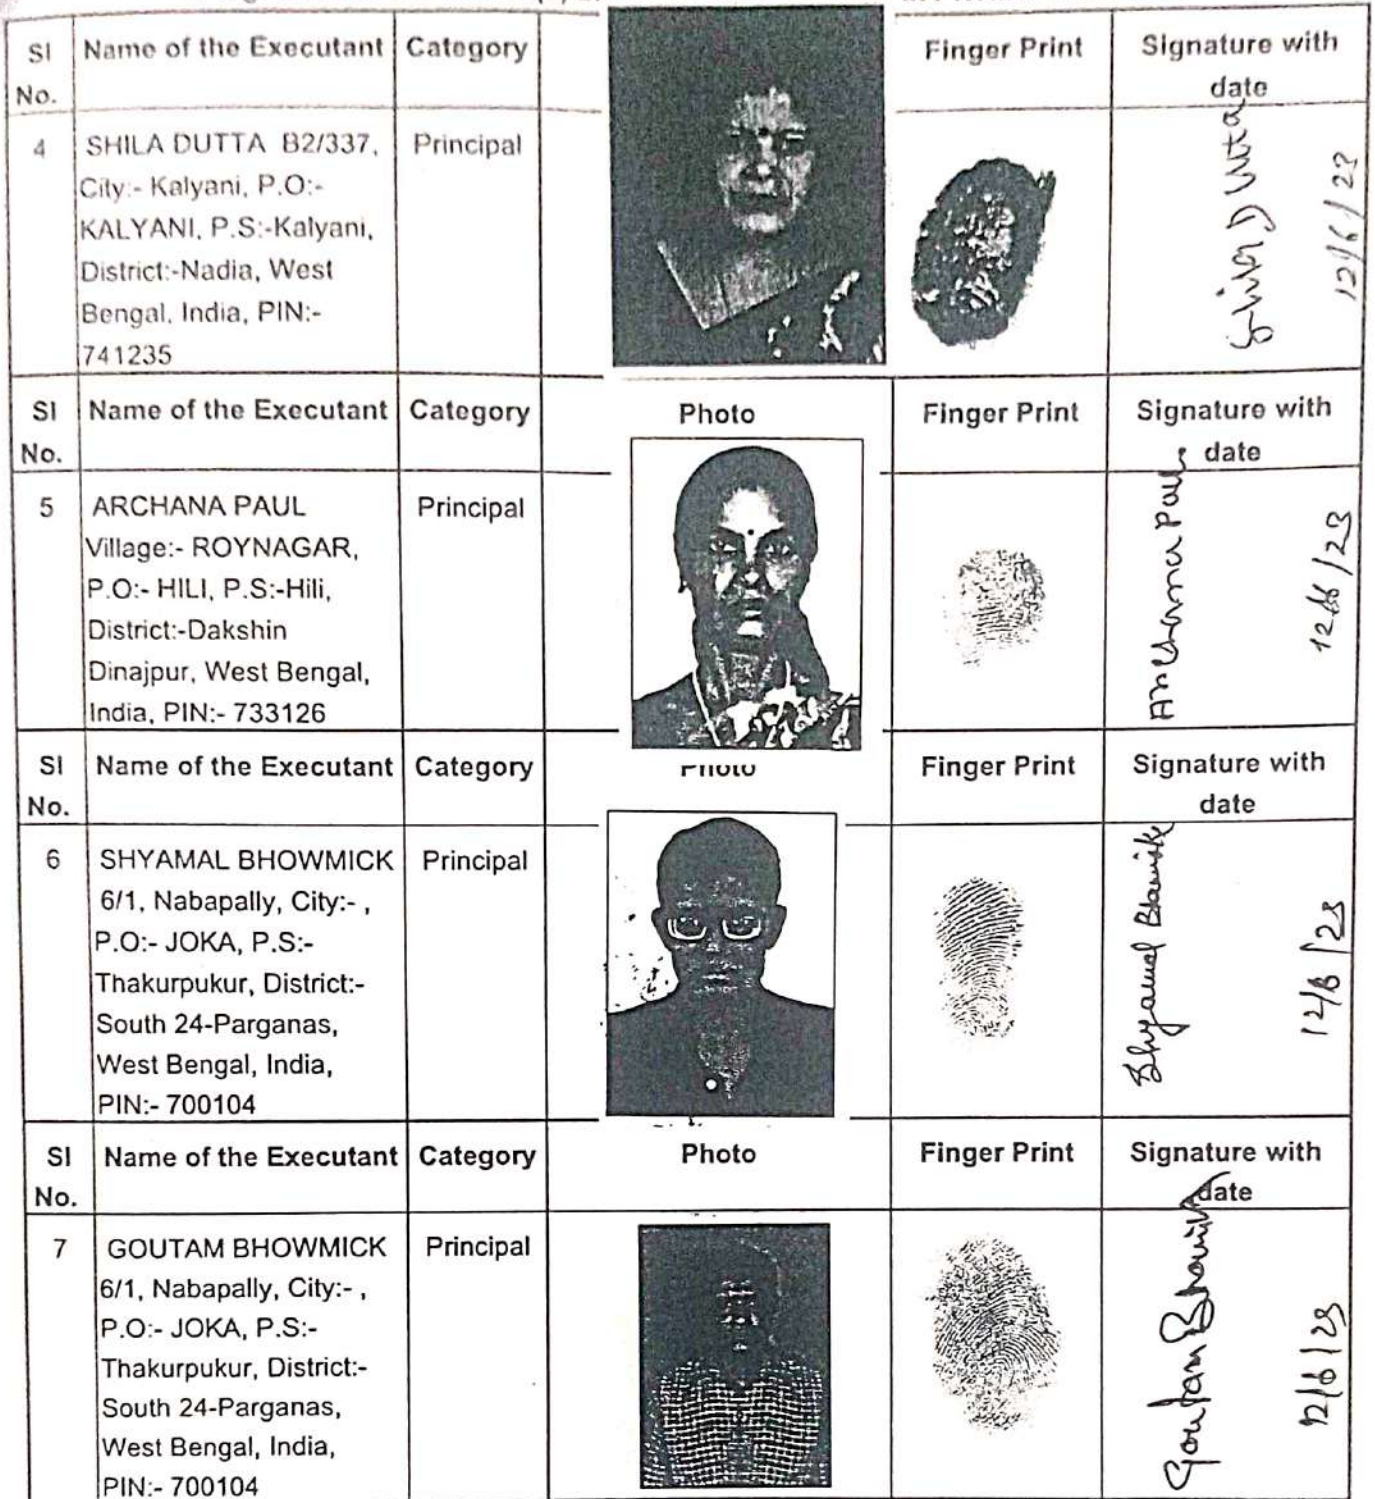 SI No. | Name of the Executant | Category | Finger Print | Signature with date
4 | SHILA DUTTA B2/337, | Principal
City:- Kalyani, P.O:-
KALYANI, P.S:-Kalyani,
District:-Nadia, West
Bengal, India, PIN:-
741235
Shila Dutta
12/6/23
SI No. | Name of the Executant | Category | Photo | Finger Print | Signature with date
5 | ARCHANA PAUL | Principal
Village:- ROYNAGAR,
P.O:- HILI, P.S:-Hili,
District:-Dakshin
Dinajpur, West Bengal,
India, PIN:- 733126
Archana Paul
12/6/23
SI No. | Name of the Executant | Category | Photo | Finger Print | Signature with date
6 | SHYAMAL BHOWMICK | Principal
6/1, Nabapally, City:- ,
P.O:- JOKA, P.S:-
Thakurpukur, District:-
South 24-Parganas,
West Bengal, India,
PIN:- 700104
Shyamal Bhowmick
12/6/23
SI No. | Name of the Executant | Category | Photo | Finger Print | Signature with date
7 | GOUTAM BHOWMICK | Principal
6/1, Nabapally, City:- ,
P.O:- JOKA, P.S:-
Thakurpukur, District:-
South 24-Parganas,
West Bengal, India,
PIN:- 700104
Goutam Bhowmick
12/6/23